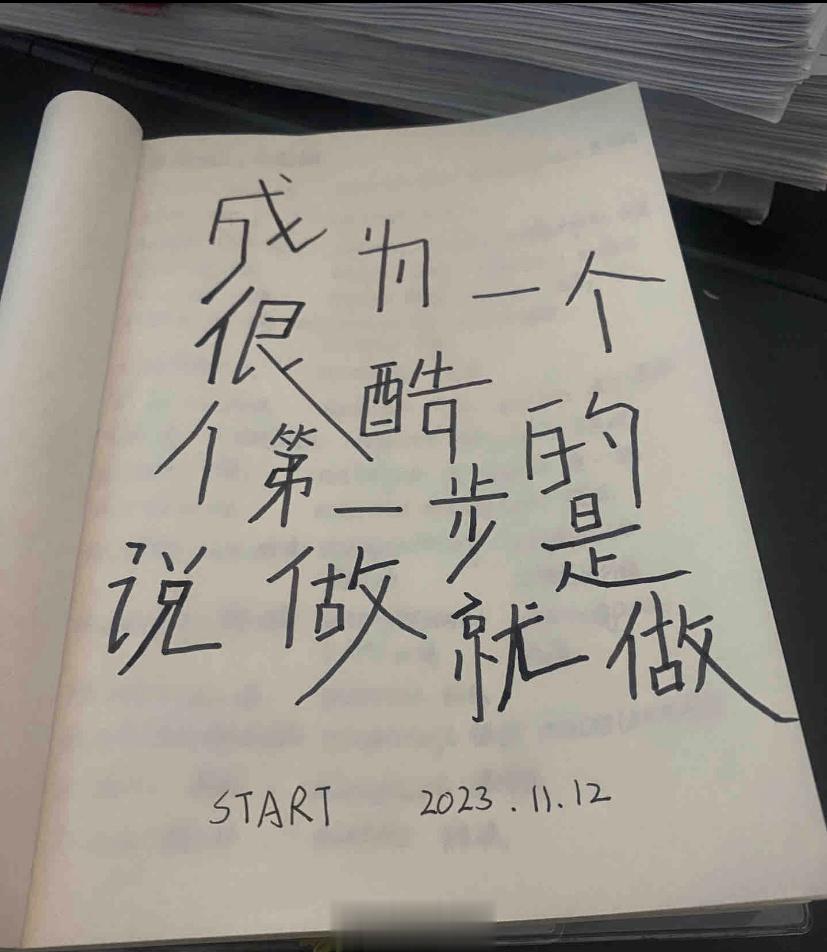 成为一个
很酷的
人第一步是
说做就做
START 2023.11.12